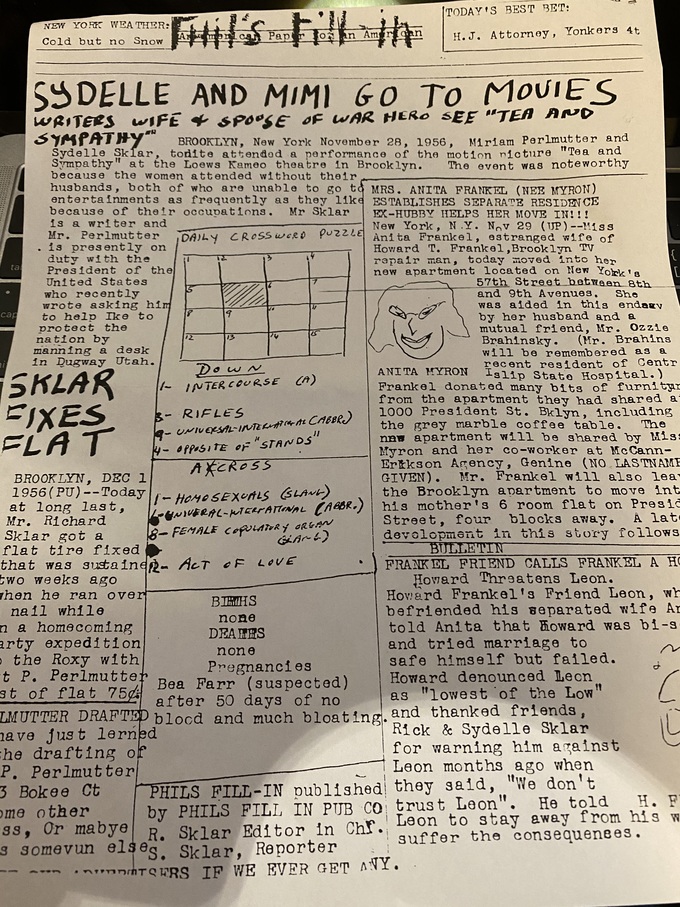 NEW YORK WEATHER:
Cold but no Snow
Phil's Fill-in
An American Paper for an American
TODAY'S BEST BET:
H.J. Attorney, Yonkers 4t
SYDELLE AND MIMI GO TO MOVIES
WRITERS WIFE & SPOUSE OF WAR HERO SEE "TEA AND
SYMPATHY"
BROOKLYN, New York November 28, 1956, Miriam Perlmutter and
Sydelle Sklar, tonite attended a performance of the motion picture "Tea and
Sympathy" at the Loews Kameo theatre in Brooklyn. The event was noteworthy
because the women attended without their
husbands, both of who are unable to go to
entertainments as frequently as they like
because of their occupations. Mr Sklar
is a writer and
Mr. Perlmutter
is presently on
duty with the
President of the
United States
who recently
wrote asking him
to help Ike to
protect the
nation by
manning a desk
in Dugway Utah.
SKLAR
FIXES
FLAT
BROOKLYN, DEC 1
1956(PU)--Today
at long last,
Mr. Richard
Sklar got a
flat tire fixed
that was sustained
two weeks ago
when he ran over
nail while
n a homecoming
arty expedition
o the Roxy with
t P. Perlmutter
st of flat 75¢
LMUTTER DRAFTED
have just lerned
the drafting of
P. Perlmutter
3 Bokee Ct
ome other
ss, Or mabye
s somevun else
DAILY CROSSWORD PUZZLE
1 2 3 4
5 6 7
8 9 10 11
12 13 14 15
DOWN
1- INTERCOURSE (A)
3- RIFLES
9- UNIVERSAL-INTERNATIONAL (ABBR.)
4- OPPOSITE OF "STANDS"
ACROSS
1- HOMOSEXUALS (SLANG)
6- UNIVERAL-INTERNATIONAL (ABBR.)
8- FEMALE COPULATORY ORGAN
(SLANG)
12- ACT OF LOVE
BIRTHS
none
DEATHS
none
Pregnancies
Bea Farr (suspected)
after 50 days of no
blood and much bloating.
PHILS FILL-IN published
by PHILS FILL IN PUB CO
R. Sklar Editor in Chf.
S. Sklar, Reporter
ADVERTISERS IF WE EVER GET ANY.
MRS. ANITA FRANKEL (NEE MYRON)
ESTABLISHES SEPARATE RESIDENCE
EX-HUBBY HELPS HER MOVE IN!!!
New York, N.Y. Nov 29 (UP)--Miss
Anita Frankel, estranged wife of
Howard T. Frankel, Brooklyn TV
repair man, today moved into her
new apartment located on New York's
57th Street between 8th
and 9th Avenues. She
was aided in this endeav
by her husband and a
mutual friend, Mr. Ozzie
Brahinsky. (Mr. Brahins
will be remembered as a
recent resident of Centr
Islip State Hospital.)
ANITA MYRON
Frankel donated many bits of furnitur
from the apartment they had shared a
1000 President St. Bklyn, including
the grey marble coffee table. The
new apartment will be shared by Miss
Myron and her co-worker at McCann-
Erikson Agency, Genine (NO LASTNAME
GIVEN). Mr. Frankel will also lea
the Brooklyn apartment to move int
his mother's 6 room flat on Presid
Street, four blocks away. A late
development in this story follows
BULLETIN
FRANKEL FRIEND CALLS FRANKEL A HO
Howard Threatens Leon.
Howard Frankel's Friend Leon, wh
befriended his separated wife An
told Anita that Howard was bi-s
and tried marriage to
safe himself but failed.
Howard denounced Leon
as "lowest of the Low"
and thanked friends,
Rick & Sydelle Sklar
for warning him against
Leon months ago when
they said, "We don't
trust Leon". He told H. F
Leon to stay away from his w
suffer the consequences.